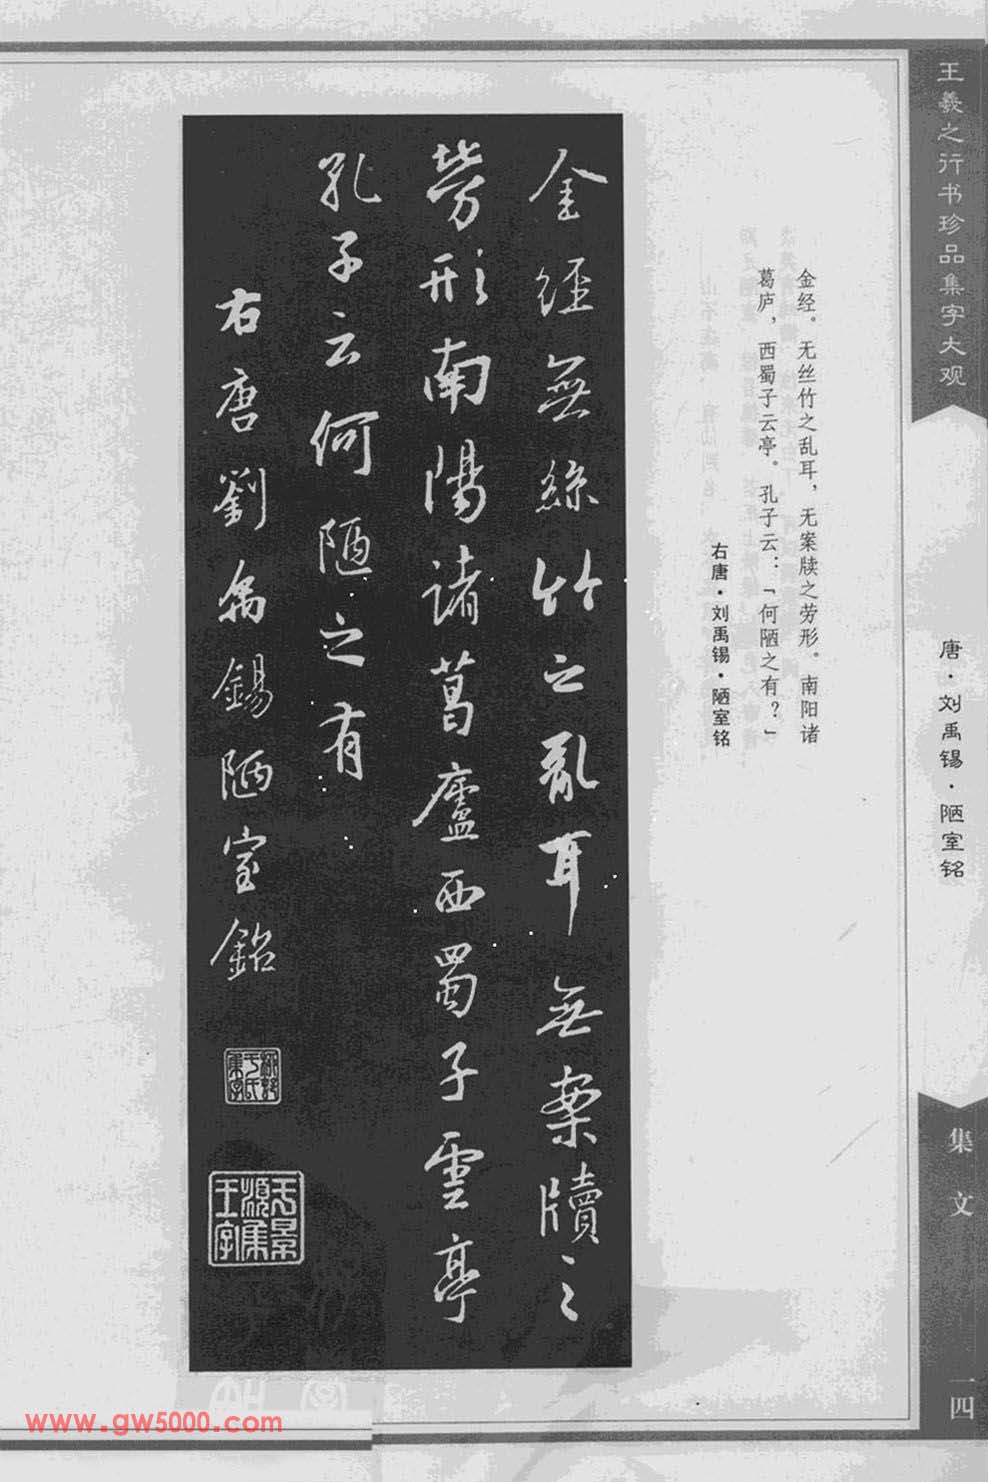 王羲之行书珍品集字大观
唐·刘禹锡·陋室铭
集文
一四
金经。无丝竹之乱耳，无案牍之劳形。南阳诸
葛庐，西蜀子云亭。孔子云：「何陋之有？」
右唐·刘禹锡·陋室铭
金經無絲竹之亂耳無案牘之
勞形南陽諸葛廬西蜀子雲亭
孔子云何陋之有
右唐劉禹錫陋室銘
www.gw5000.com